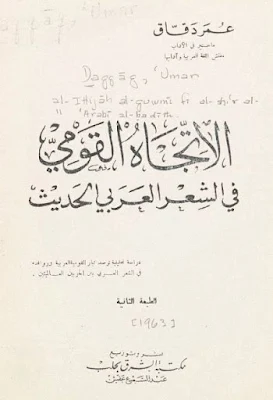 عمر دقاق
ماجستير في الآداب
مفتش اللغة العربية وآدابها
Daqqāq, 'Umar
al-Ittijāh al-qawmī fī al-shi'r al-
'Arabī al-ḥadīth.
الاتجاه القومي
في الشعر العربي الحديث
دراسة تحليلية ترصد تيار القومية العربية
في الشعر العربي بين الحربين العالميتين
الطبعة الثانية
[1963]
نشر وتوزيع
مكتبة الشرق بحلب